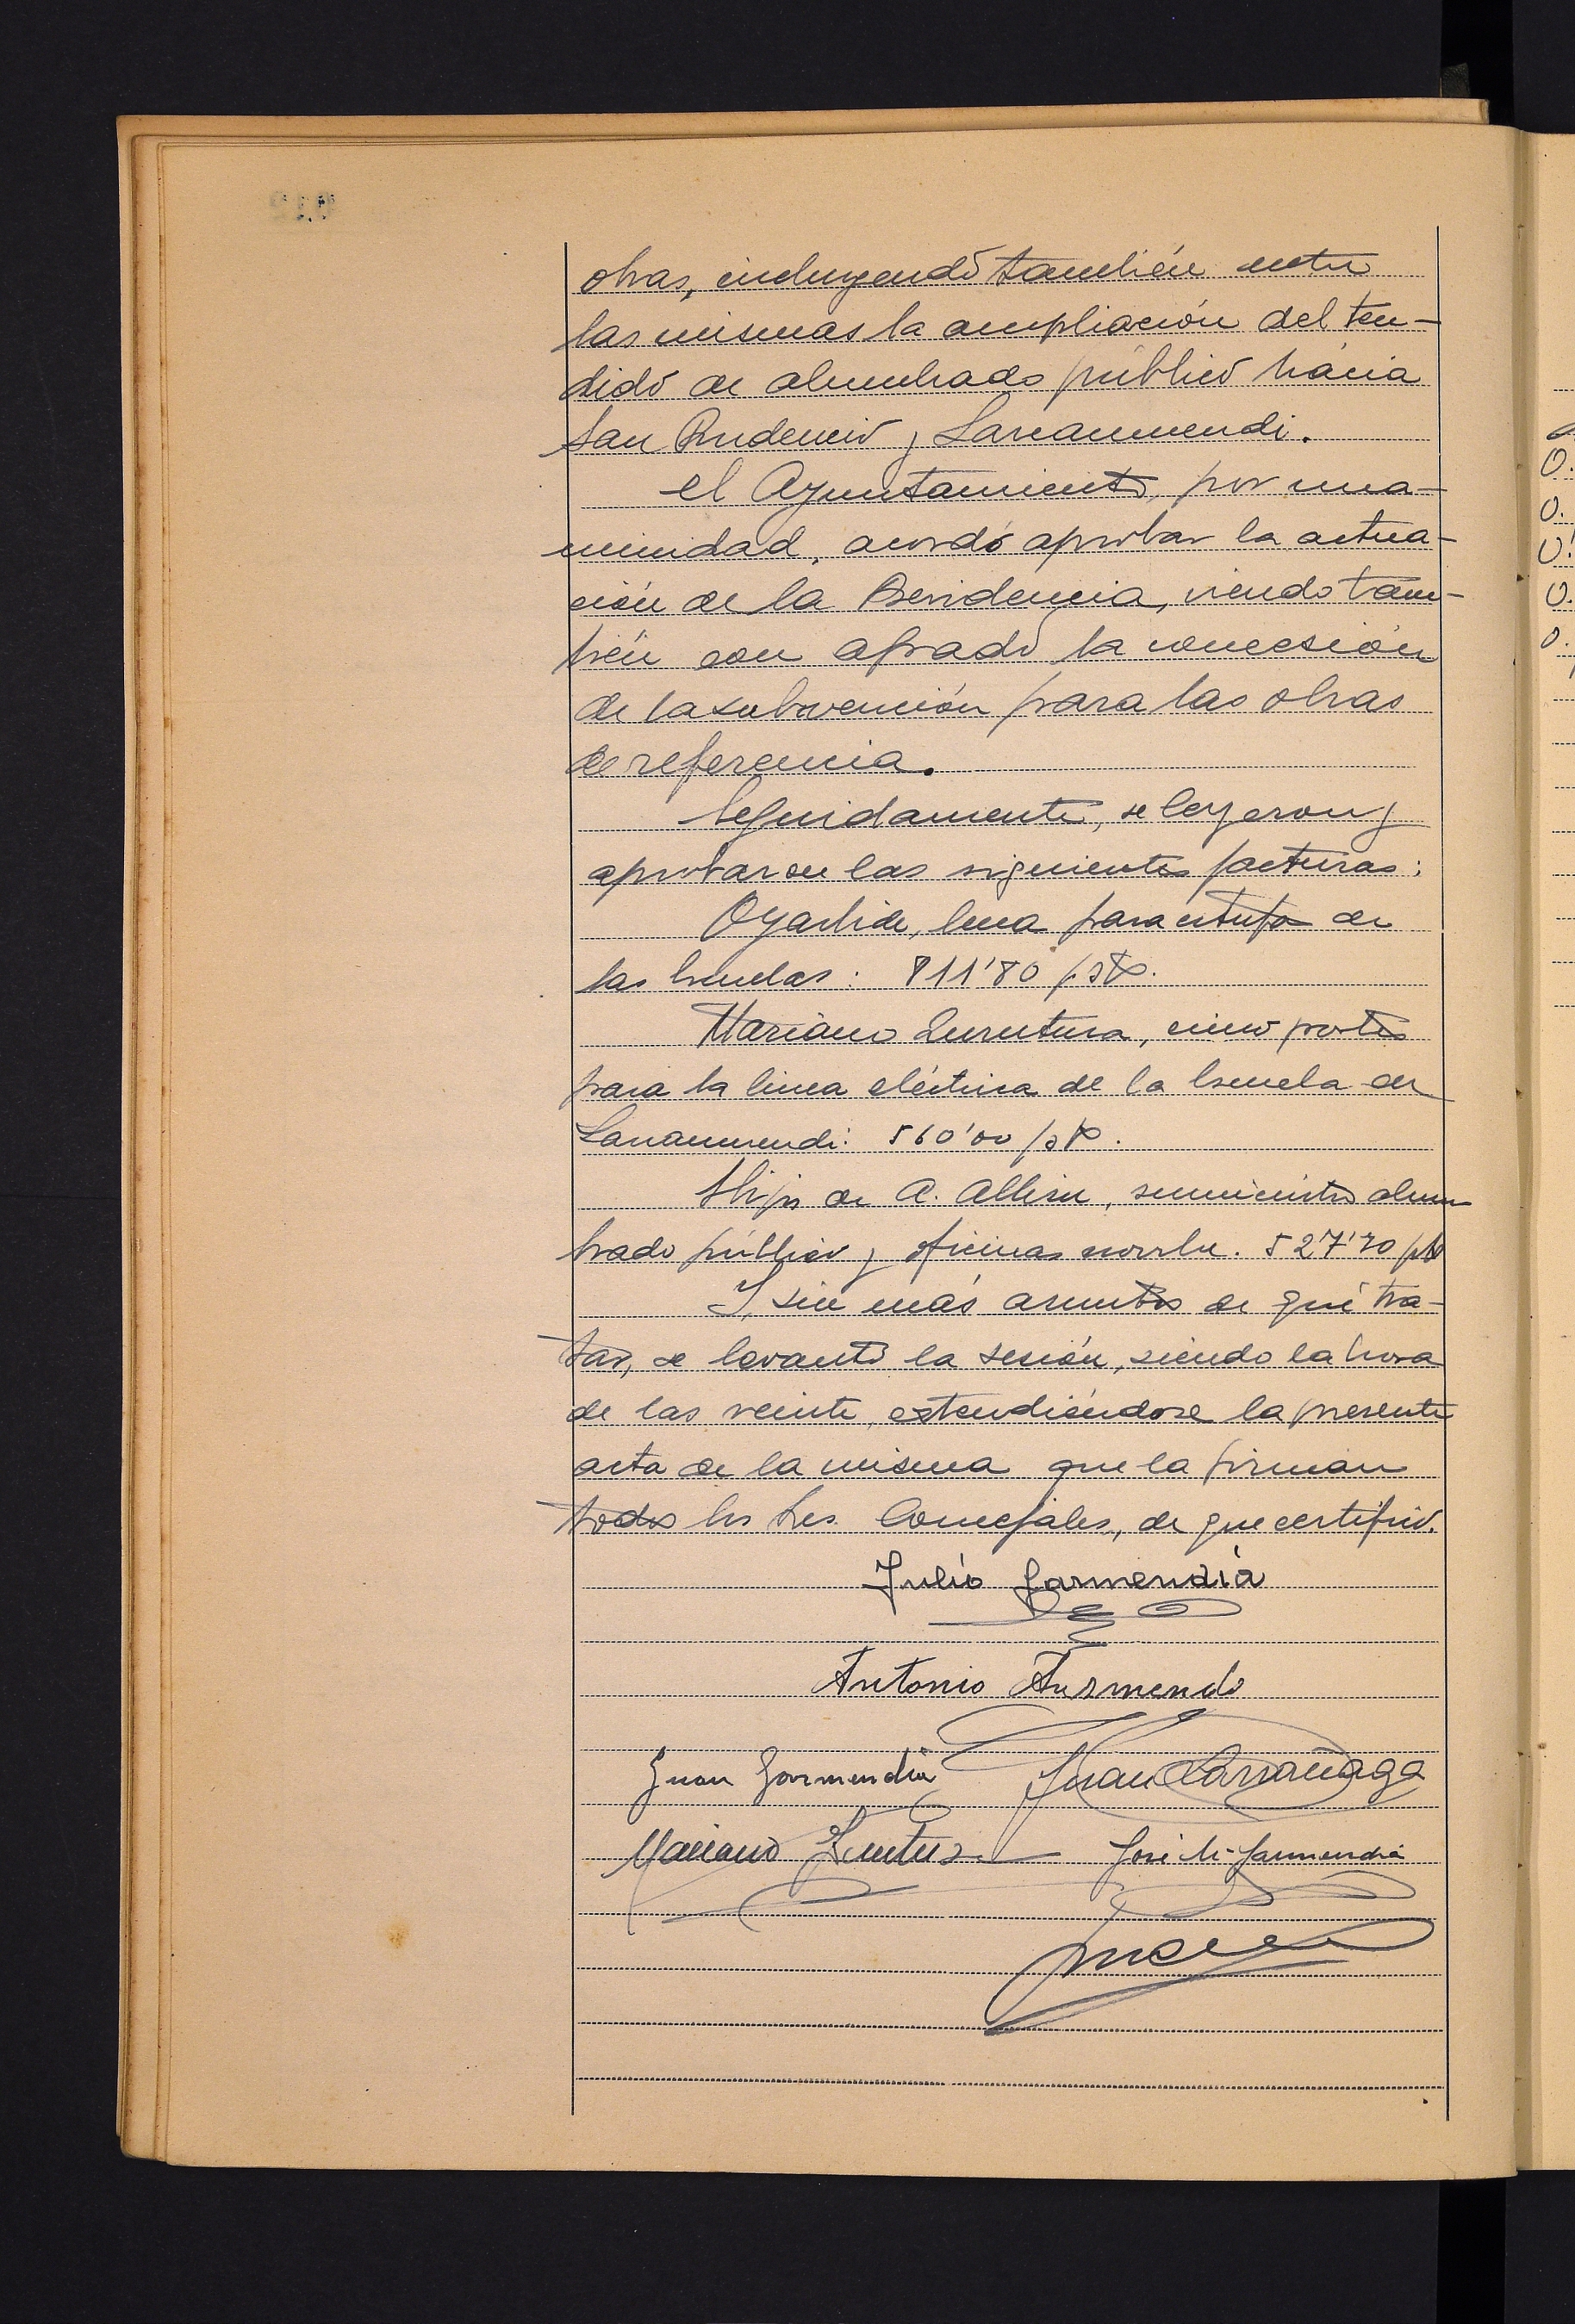 obras, incluyendo también entre
las mismas la ampliación del ten-
dido de alumbrado público hácia
San Prudencio y Larramendi.
el Ayuntamiento, por una-
nimidad, acordó aprobar la actua-
ción de la Presidencia, viendo tam-
bién con agrado la concesión
de la subvención para las obras
de referencia.
Seguidamente, se leyeron y
aprobaron las siguientes facturas:
Oyarbide, leña para estufa de
las Escuelas: 811'80 pts.
Mariano Lurutuza, cinco postes
para la linea eléctrica de la Escuela de
Larramendi: 560'00 pts.
Hijos de A. Albisu, suministro alum
brado público y oficinas 527'70 pts
Y, sin más asuntos de qué tra-
tar, se levantó la sesión, siendo la hora
de las veinte, extendiéndose la presente
acta de la misma que la firman
todos los Sres. Concejales, de que certifico.
Julio Garmendia
Antonio
Juan Garmendia Juan Larrañaga
Mariano José M. Garmendia